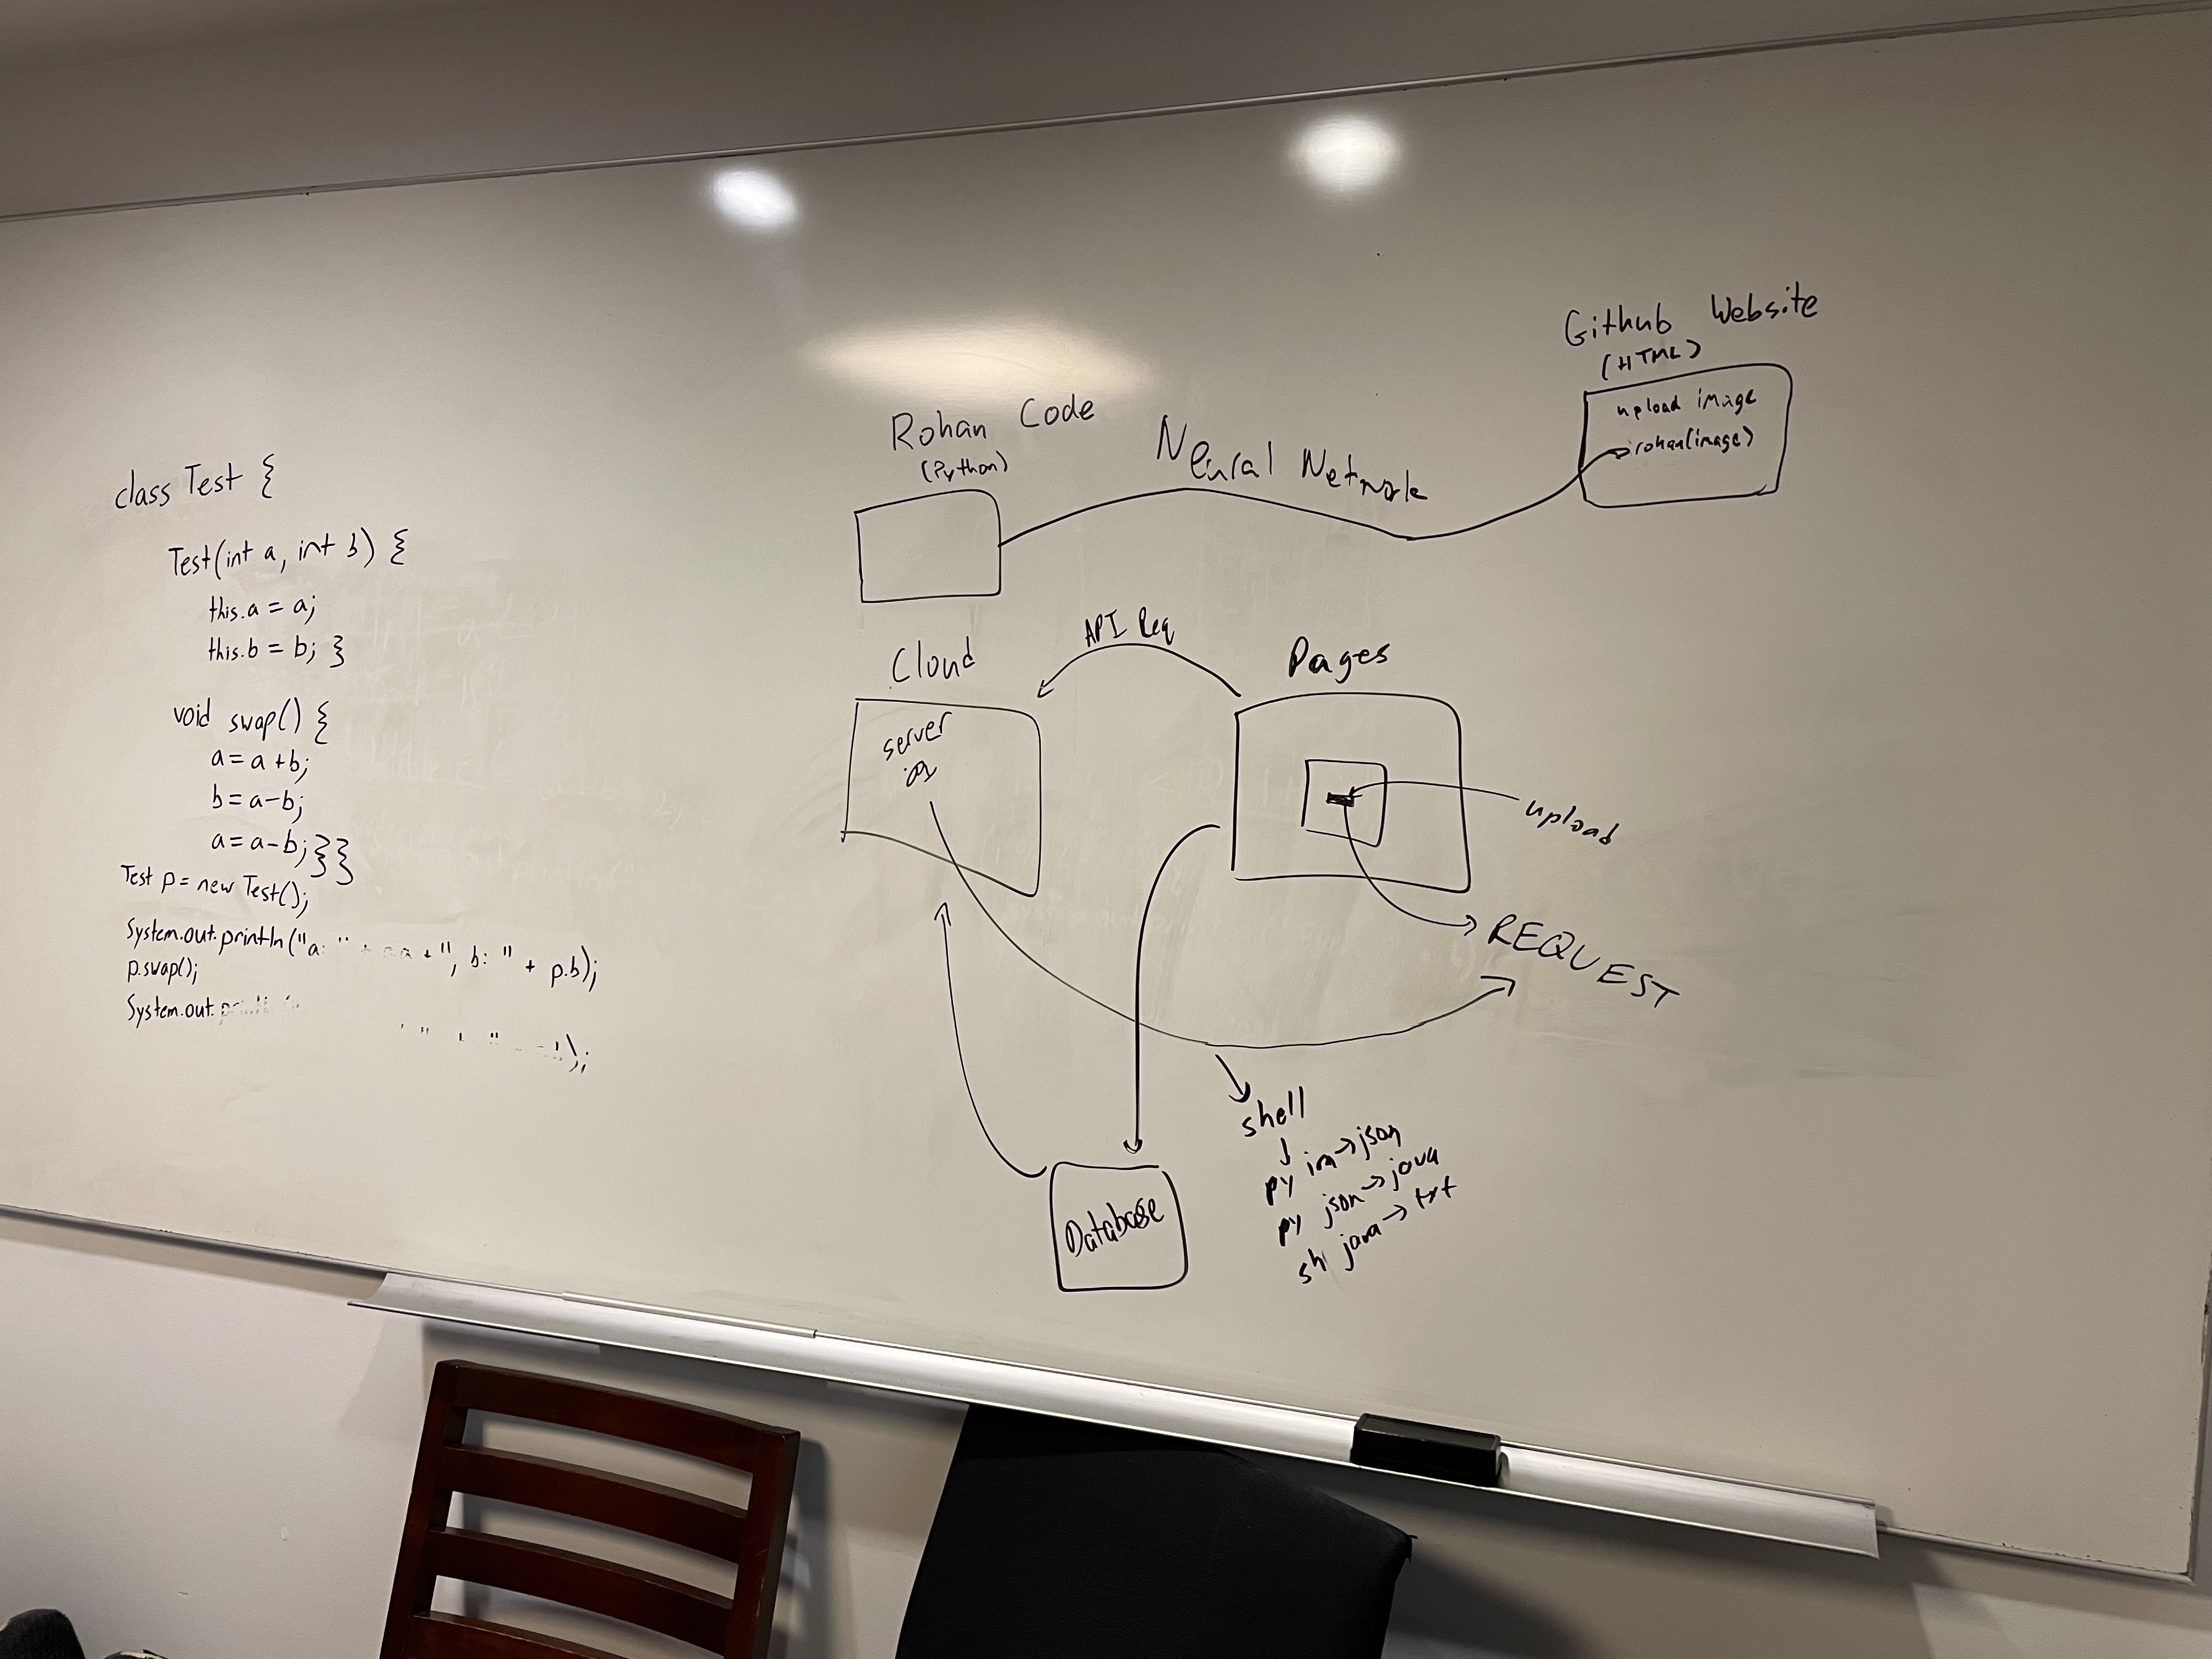 class Test {
Test(int a, int b) {
this.a = a;
this.b = b; }
void swap() {
a = a + b;
b = a - b;
a = a - b; }}
Test p = new Test();
System.out.println("a: " + + ", b: " + p.b);
p.swap();
System.out.
Rohan Code
(Python)
Neural Network
Github Website
(HTML)
upload image
rohan(image)
Cloud
API Req
Pages
server
upload
REQUEST
shell
py im → json
py json → java
sh java → txt
Database